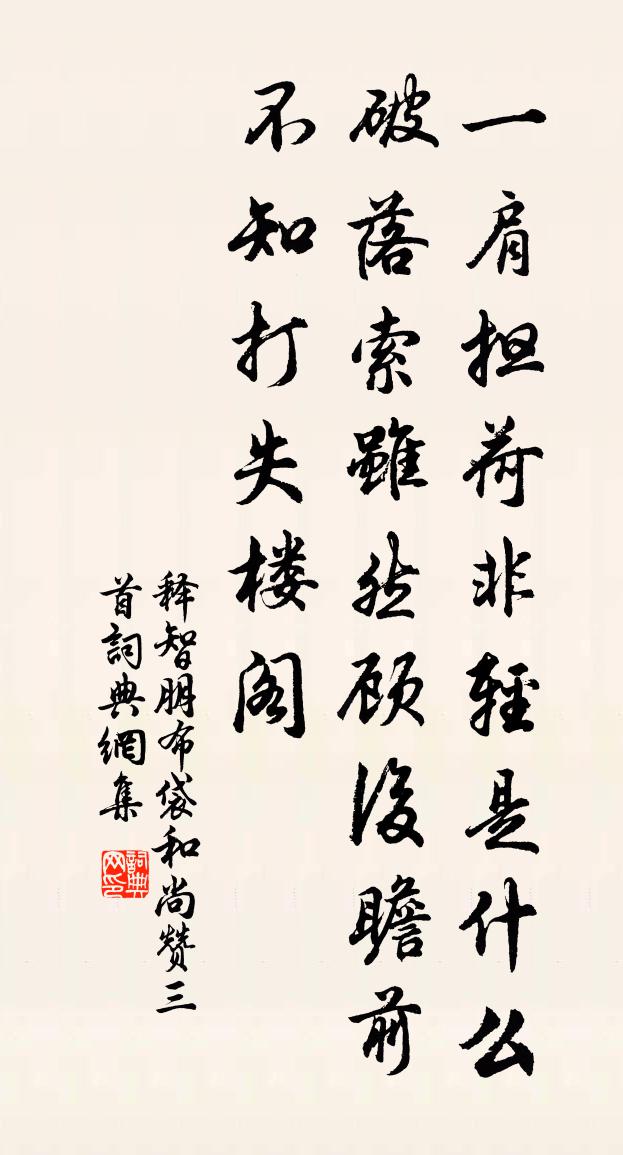 一肩担荷非轻是什么
破落索雖然顾後瞻前
不知打失楼阁
释智朋布袋和尚赞三
首詞典網集
詞典网印